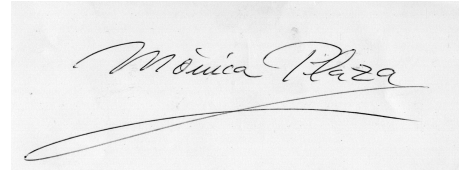 Mónica Plaza